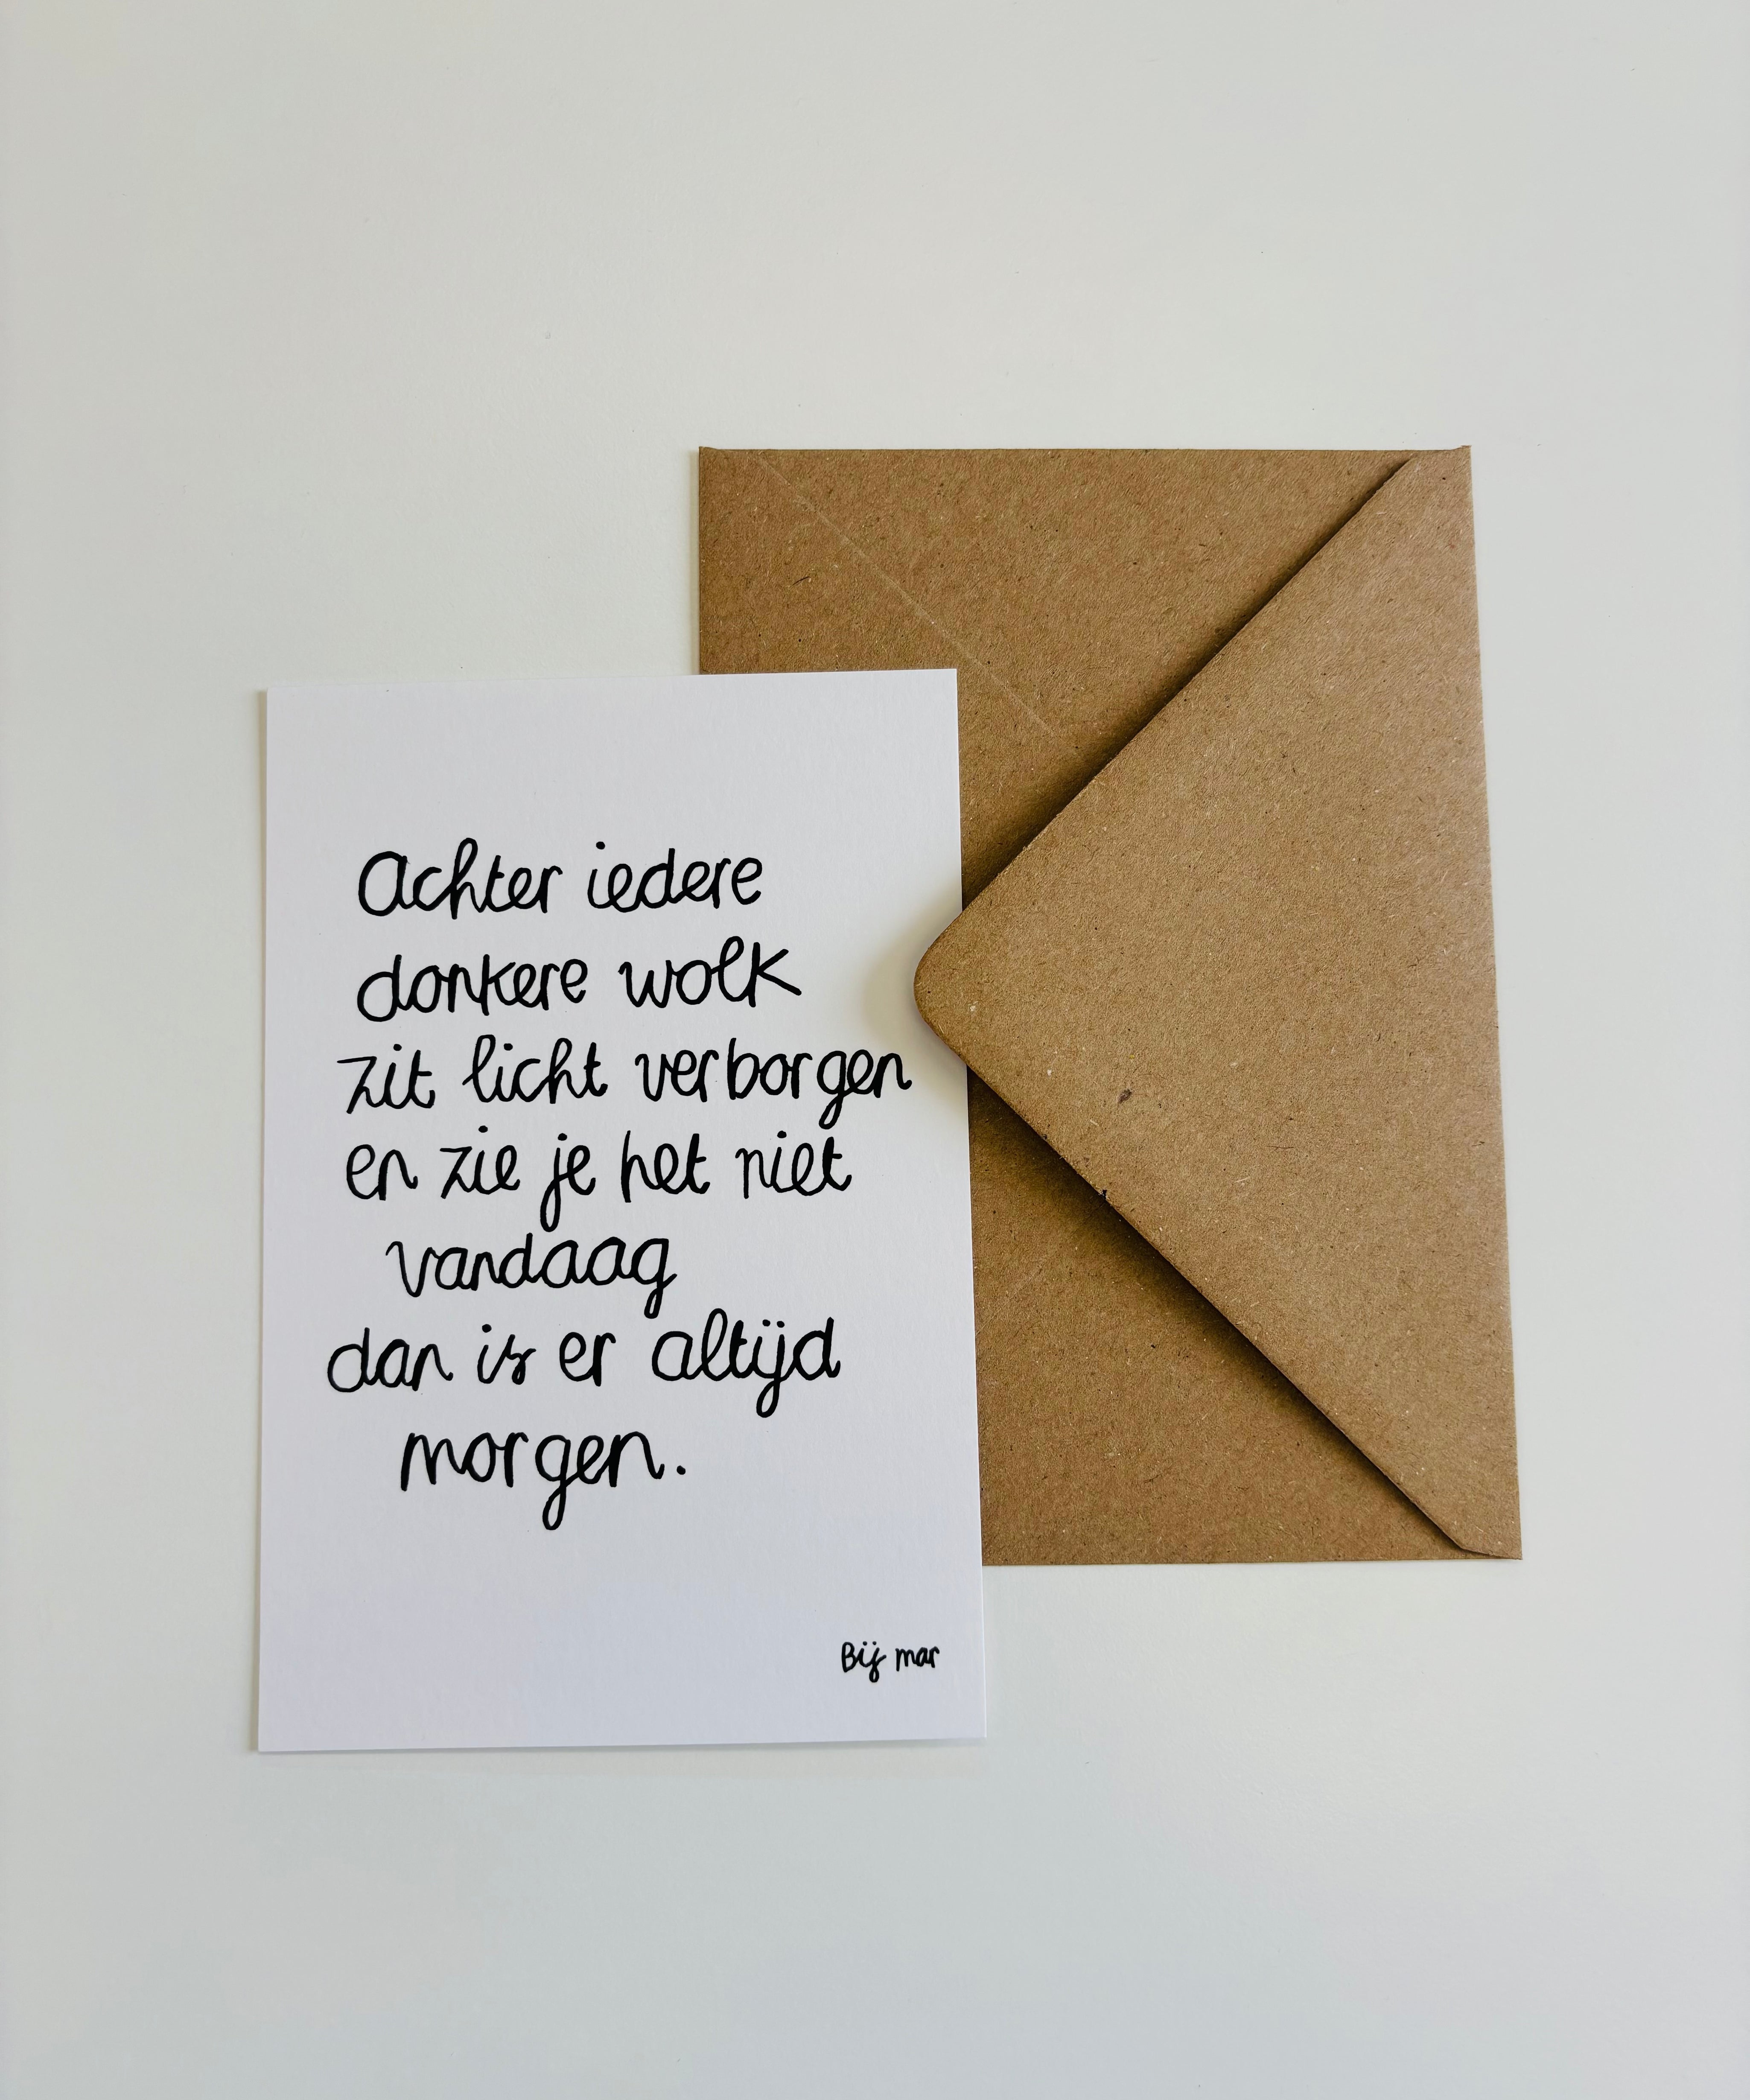 Achter iedere
donkere wolk
zit licht verborgen
en zie je het niet
vandaag
dan is er altijd
morgen.
Bij mar